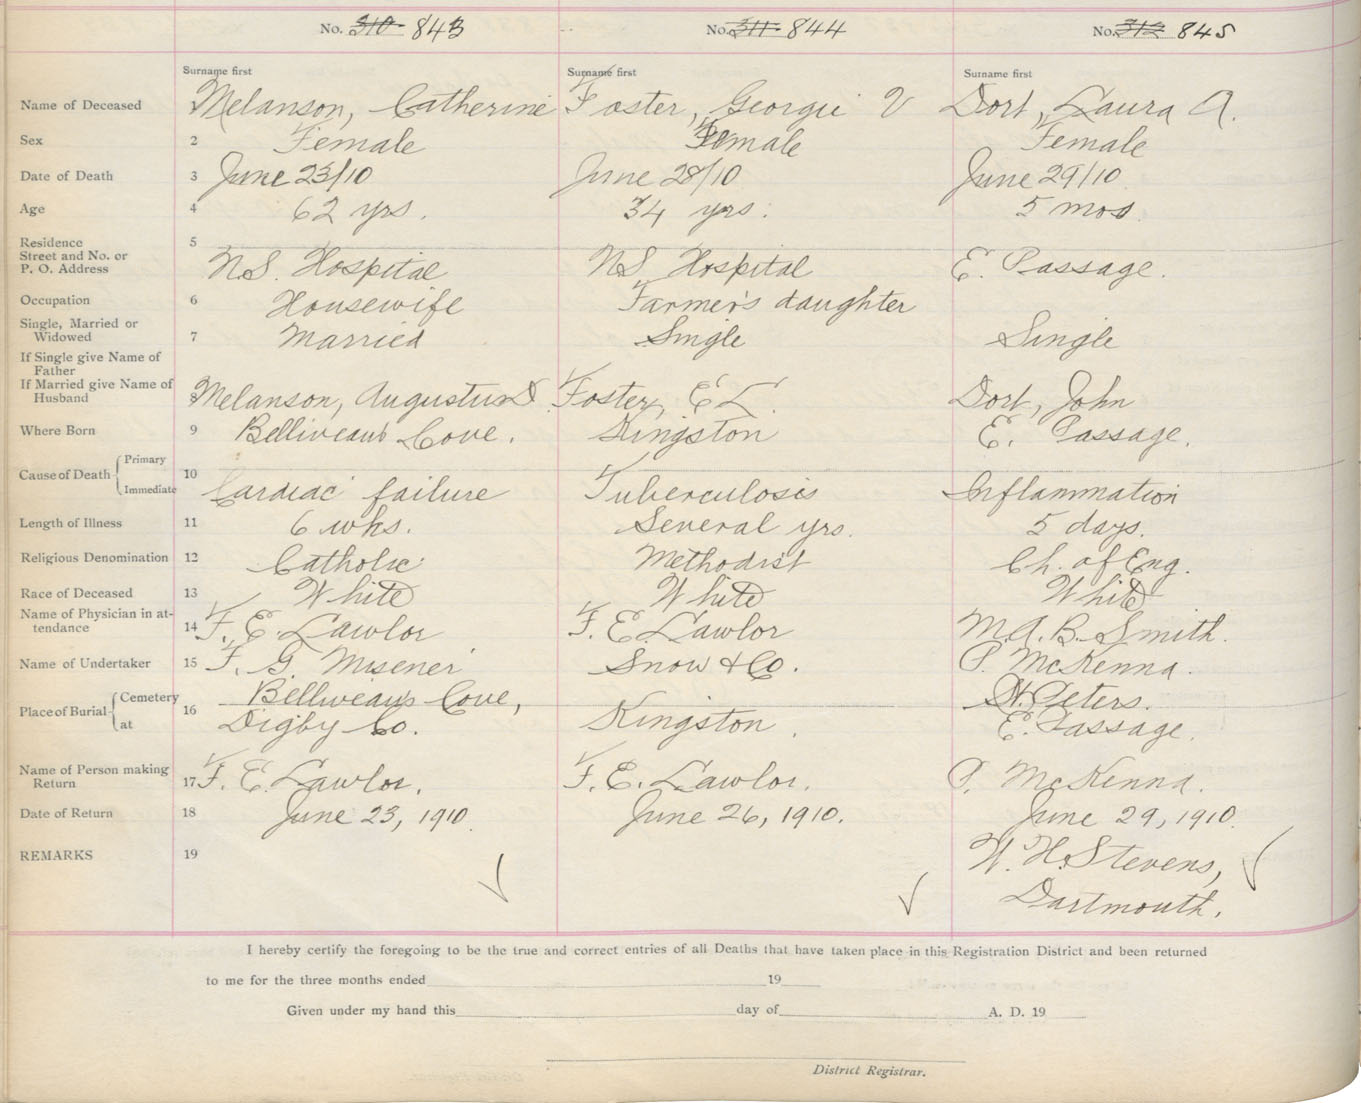 No. 310 843 No. 311 844 No. 312 845
Surname first Surname first Surname first
Name of Deceased 1 Melanson, Catherine Foster, Georgie V Dort, Laura A.
Sex 2 Female Female Female
Date of Death 3 June 23/10 June 28/10 June 29/10
Age 4 62 yrs. 34 yrs. 5 mos
Residence 5
Street and No. or
P. O. Address N.S. Hospital NS Hospital E. Passage.
Occupation 6 Housewife Farmer's daughter
Single, Married or
Widowed 7 Married Single Single
If Single give Name of
Father
If Married give Name of
Husband 8 Melanson, Augustus D. Foster, E L. Dort, John
Where Born 9 Belliveau's Cove. Kingston E. Passage.
Cause of Death Primary 10
Immediate Cardiac failure Tuberculosis Inflammation
Length of Illness 11 6 wks. Several yrs. 5 days.
Religious Denomination 12 Catholic Methodist Ch. of Eng.
Race of Deceased 13 White White White
Name of Physician in at-
tendance 14 F. E. Lawlor F. E. Lawlor M.A.B. Smith.
Name of Undertaker 15 F. G. Misener Snow & Co. P. McKenna.
Place of Burial Cemetery 16 Belliveau's Cove, St. Peters.
at Digby Co. Kingston. E. Passage.
Name of Person making
Return 17 F. E. Lawlor. F. E. Lawlor. P. McKenna.
Date of Return 18 June 23, 1910 June 26, 1910. June 29, 1910.
REMARKS 19 W. H. Stevens,
Dartmouth.
I hereby certify the foregoing to be the true and correct entries of all Deaths that have taken place in this Registration District and been returned
to me for the three months ended 19
Given under my hand this day of A. D. 19
District Registrar.